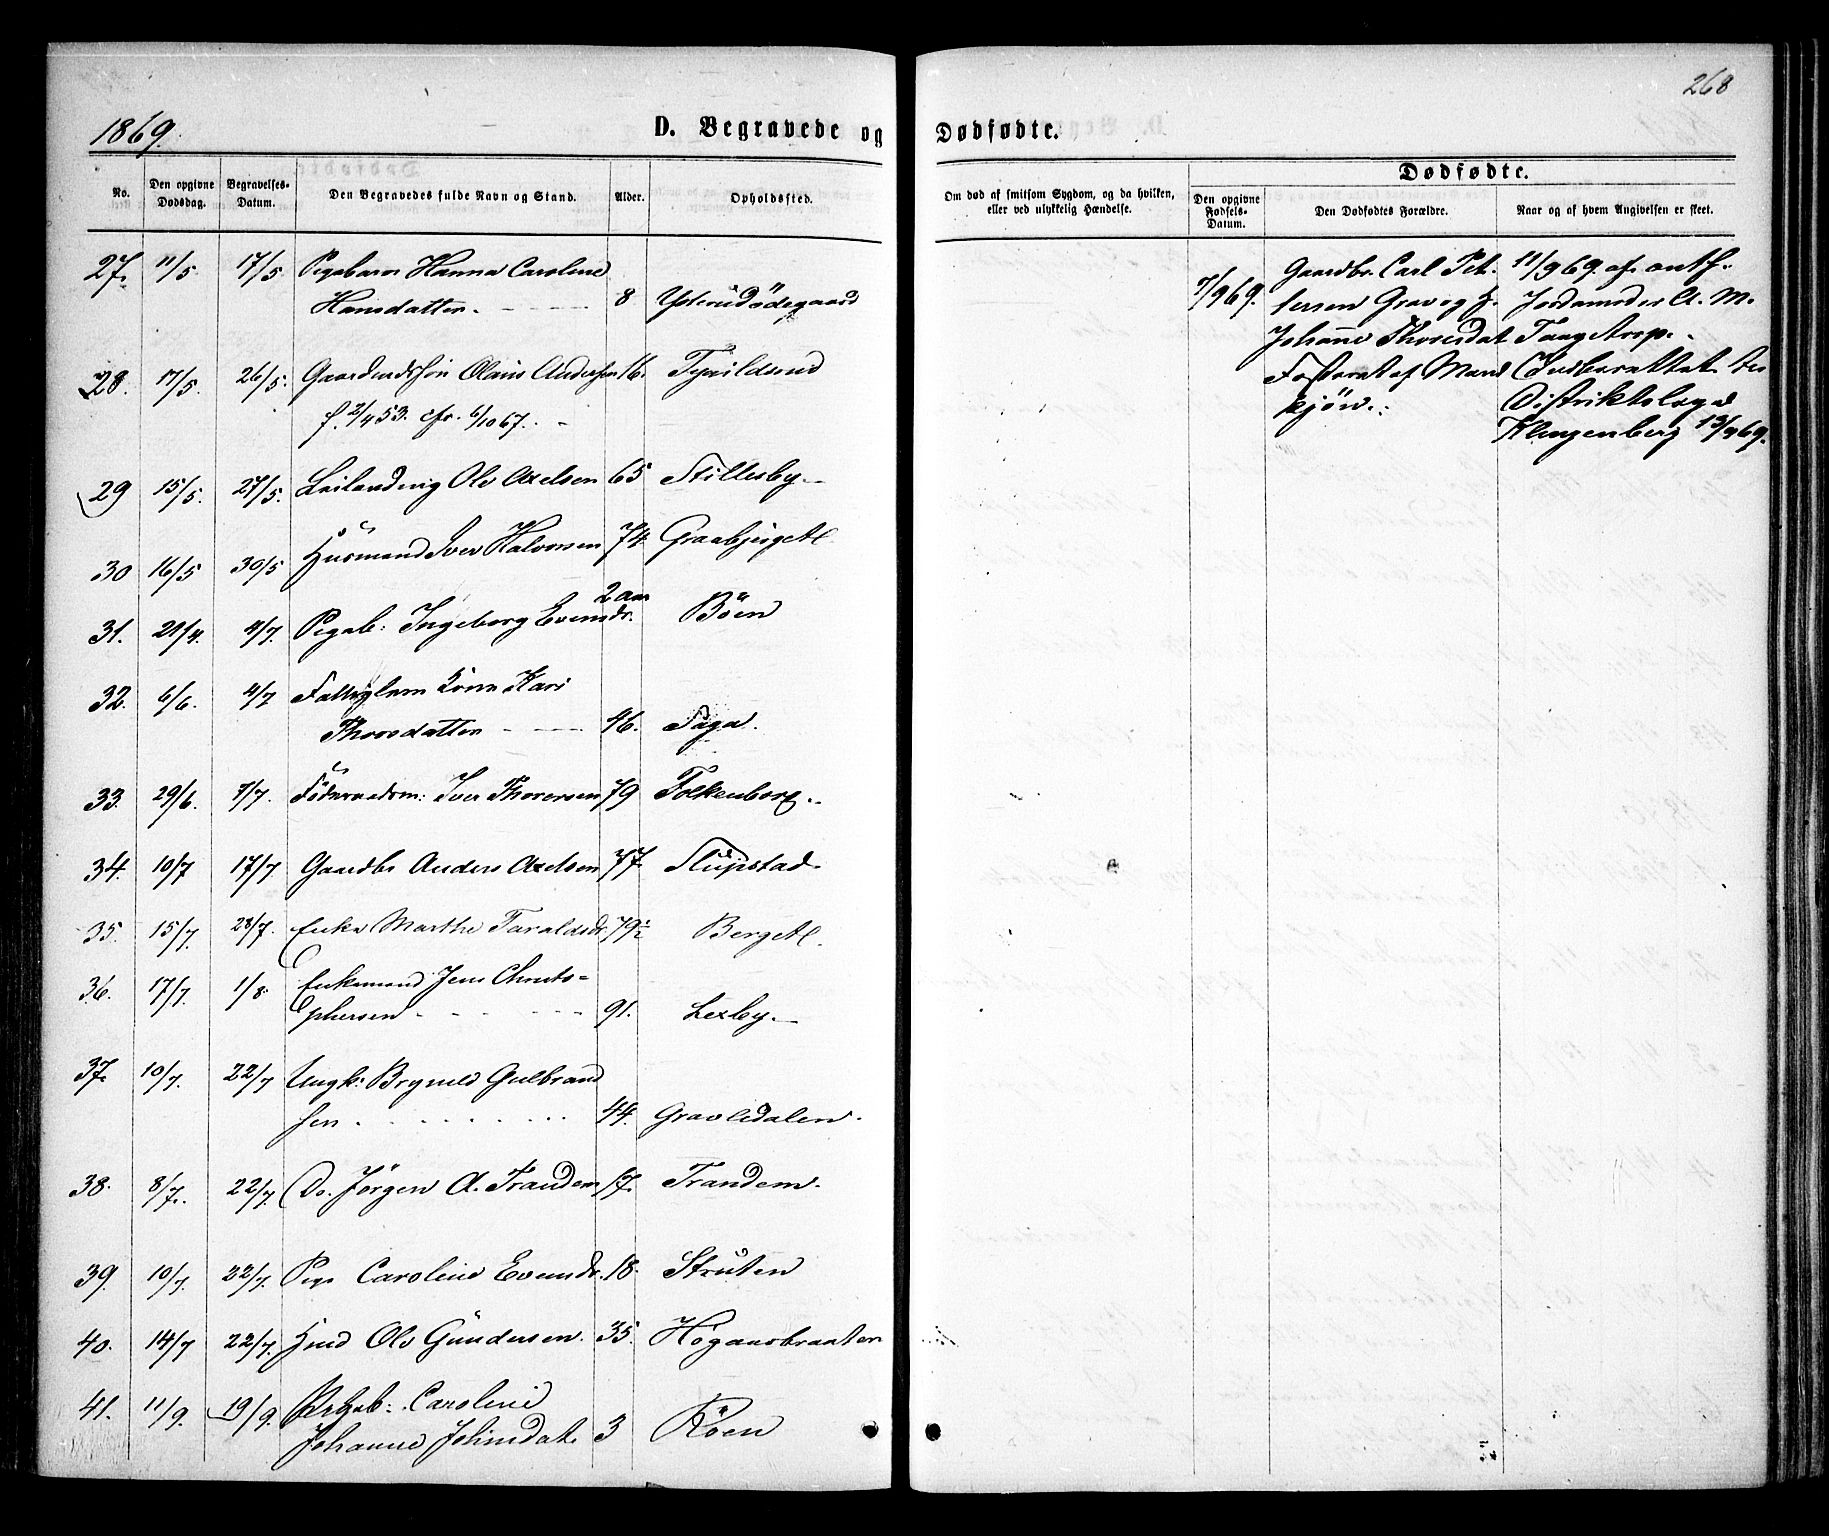 268
1869.
D. Begravede og Dødfødte.
No.
Den opgivne Dødsdag.
Begravelses-Datum.
Den Begravedes fulde Navn og Stand.
Alder.
Opholdssted.
Om død af smitsom Sygdom, og da hvilken, eller ved ulykkelig Hændelse.
Dødfødte.
Den opgivne Fødsels-Datum.
Den Dødfødtes Forældre.
Naar og af hvem Angivelsen er skeet.
27. 11/5. 17/5 Pigebarn Hanna Caroline
Hansdatter. 8
28. 17/5. 26/5. Olaus Andersen 16.
f. 2/4 53. cfr. 6/10 67.
29 15/5. 27/5. Ole Axelsen 65 Stillesby
30 16/5 30/5 Husmand Iver Halvorsen 74.
31. 21/4. 4/7. Pigeb: Ingeborg Evensdr. 2 aar Böen
32. 6/6. 4/7 Kone Kari
Thorsdatter 46. Saga.
33. 29/6. 7/7. Föderaadsm: Iver Thoresen 79 Folkenborg
34. 10/7 17/7 Gaardbr Anders Axelsen 77. Slupstad
35. 15/7. 28/7. Enke Marthe Taraldsdr. 79½ Berget
36. 17/7. 1/8. Enkemand Jens Christo=
phersen 91. Lexby.
37. 10/7. 22/7 Ungk: Brynild Gulbrand
sen 44. Gravledalen.
38. 8/7. 22/7. Do. Jörgen A. Trandem 17. Trandem.
39. 10/7. 22/7. Pige Caroline Evensdr. 18. Struten
40. 14/7 22/7. Ole Gundersen. 35. Höganobraaten
41. 11/9. 19/9. Pigeb: Caroline
Johanne 3 Röen
7/9 69.
Gaardbr. Carl Pet-
tersen Grav og H.
Johanne Thoresdat
Fosteret af Mand
kjön.
11/9 69. af exth.
Jordemoder A. M.
Indberettet til
Distriktslæge
Klingenberg 13/9 69.